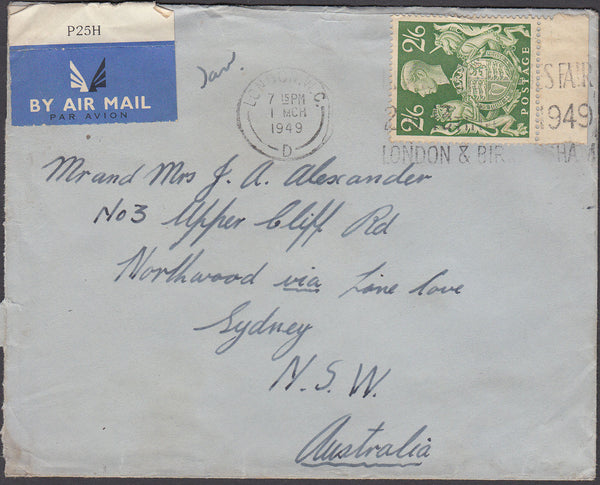 P25H
BY AIR MAIL
PAR AVION
LONDON, W.C.
7 15 PM
1 MCH
1949
D
2/6
2/6
POSTAGE
S FAIR
2
949
LONDON & BIR HA
Mr and Mrs J. A. Alexander
No 3 Upper Cliff Rd
Northwood via Lane Cove
Sydney
N. S. W.
Australia